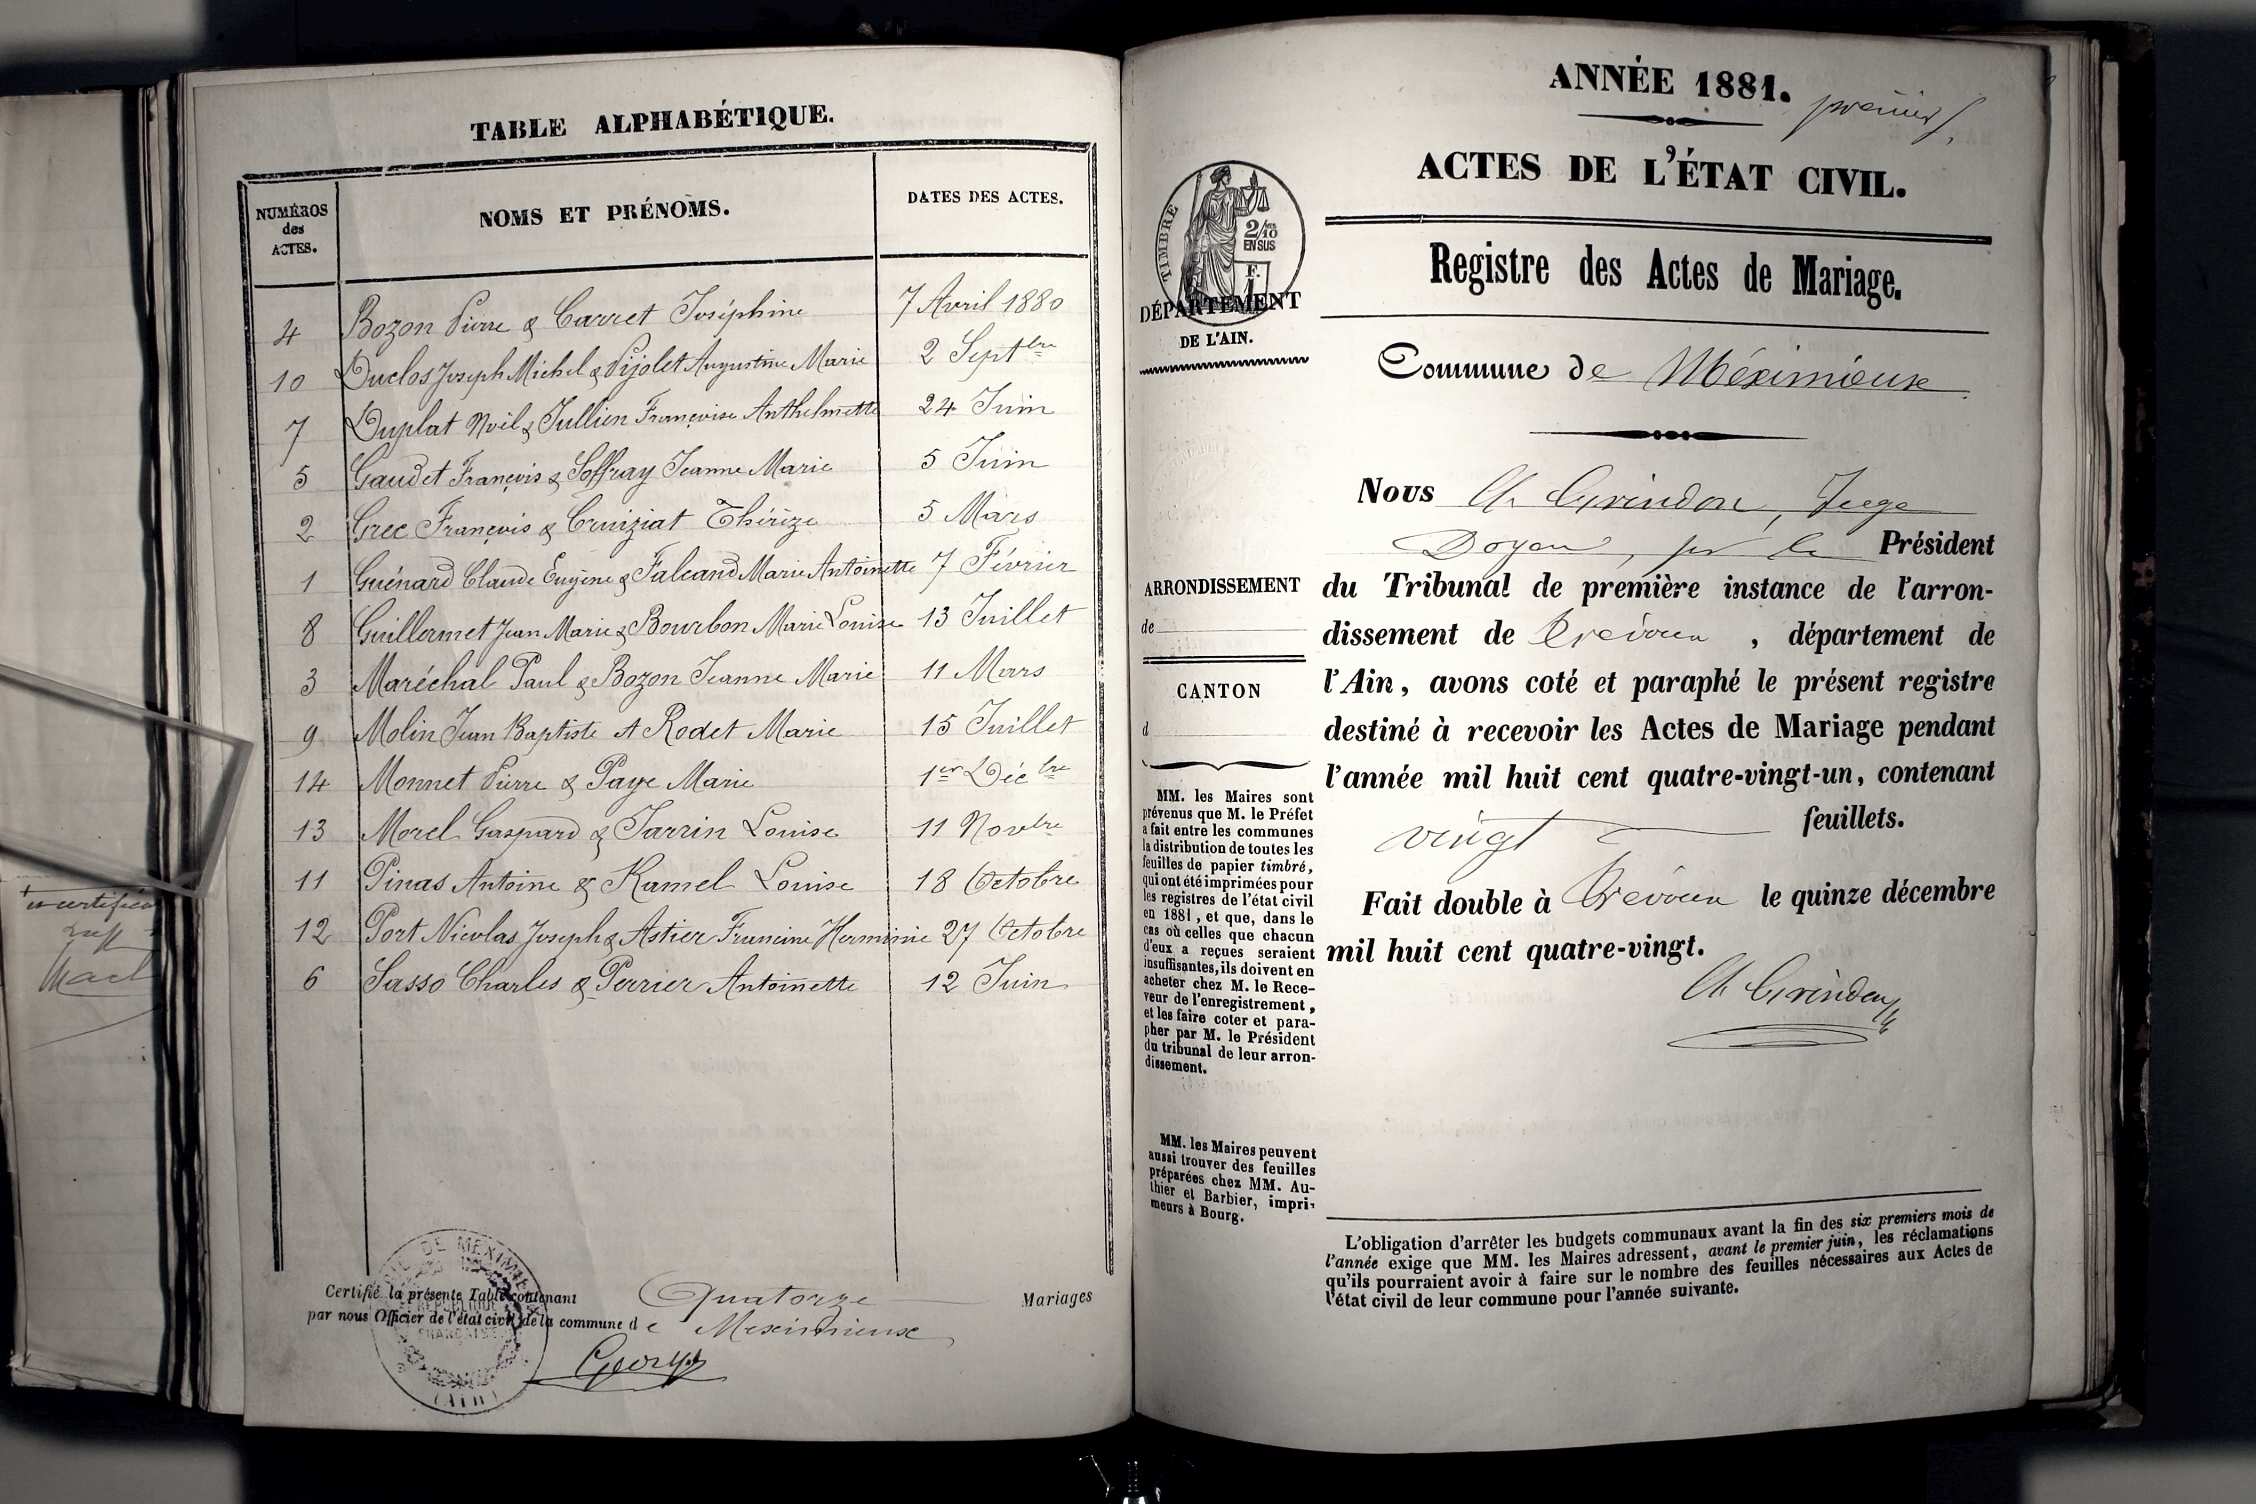 TABLE ALPHABÉTIQUE.
NUMÉROS des ACTES.
NOMS ET PRÉNOMS.
DATES DES ACTES.
4 Bozon Pierre & Carret Joséphine 7 Avril 1880
10 Duclos Joseph Michel & Pijolet Augustine Marie 2 Septbre
7 Duplat Noël & Jullien Françoise Anthelmette 24 Juin
5 Gaudet François & Soffray Jeanne Marie 5 Juin
2 Grec François & Cruiziat Thérèze 5 Mars
1 Guénard Claude Eugène & Falcand Marie Antoinette 7 Février
8 Guillermet Jean Marie & Bourbon Marie Louise 13 Juillet
3 Maréchal Paul & Bozon Jeanne Marie 11 Mars
9 Molin Jean Baptiste et Rodet Marie 15 Juillet
14 Monnet Pierre & Paye Marie 1er Décbre
13 Morel Gaspard & Jarrin Louise 11 Novbre
11 Pinas Antoine & Kamel Louise 18 Octobre
12 Port Nicolas Joseph & Astier Francine Herminie 27 Octobre
6 Sasso Charles & Perrier Antoinette 12 Juin
Certifié la présente Table contenant Quatorze Mariages
par nous Officier de l'état civil de la commune de Meximieux
RÉPUBLIQUE
FRANÇAISE
(AIN)
ANNÉE 1881.
premier
ACTES DE L'ÉTAT CIVIL.
Registre des Actes de Mariage.
TIMBRE
2/10
EN SUS
DÉPARTEMENT
DE L'AIN.
Commune de Méximieux
ARRONDISSEMENT
de
CANTON
d
MM. les Maires sont
prévenus que M. le Préfet
a fait entre les communes
la distribution de toutes les
feuilles de papier timbré,
qui ont été imprimées pour
les registres de l'état civil
en 1881, et que, dans le
cas où celles que chacun
d'eux a reçues seraient
insuffisantes, ils doivent en
acheter chez M. le Rece-
veur de l'enregistrement,
et les faire coter et para-
pher par M. le Président
du tribunal de leur arron-
dissement.
MM. les Maires peuvent
aussi trouver des feuilles
préparées chez MM. Au-
thier et Barbier, impri-
meurs à Bourg.
Nous Ch Grindon, Juge
Doyen, pr le Président
du Tribunal de première instance de l'arron-
dissement de Trévoux, département de
l'Ain, avons coté et paraphé le présent registre
destiné à recevoir les Actes de Mariage pendant
l'année mil huit cent quatre-vingt-un, contenant
vingt feuillets.
Fait double à Trévoux le quinze décembre
mil huit cent quatre-vingt.
Ch Grindon
L'obligation d'arrêter les budgets communaux avant la fin des six premiers mois de
l'année exige que MM. les Maires adressent, avant le premier juin, les réclamations
qu'ils pourraient avoir à faire sur le nombre des feuilles nécessaires aux Actes de
l'état civil de leur commune pour l'année suivante.